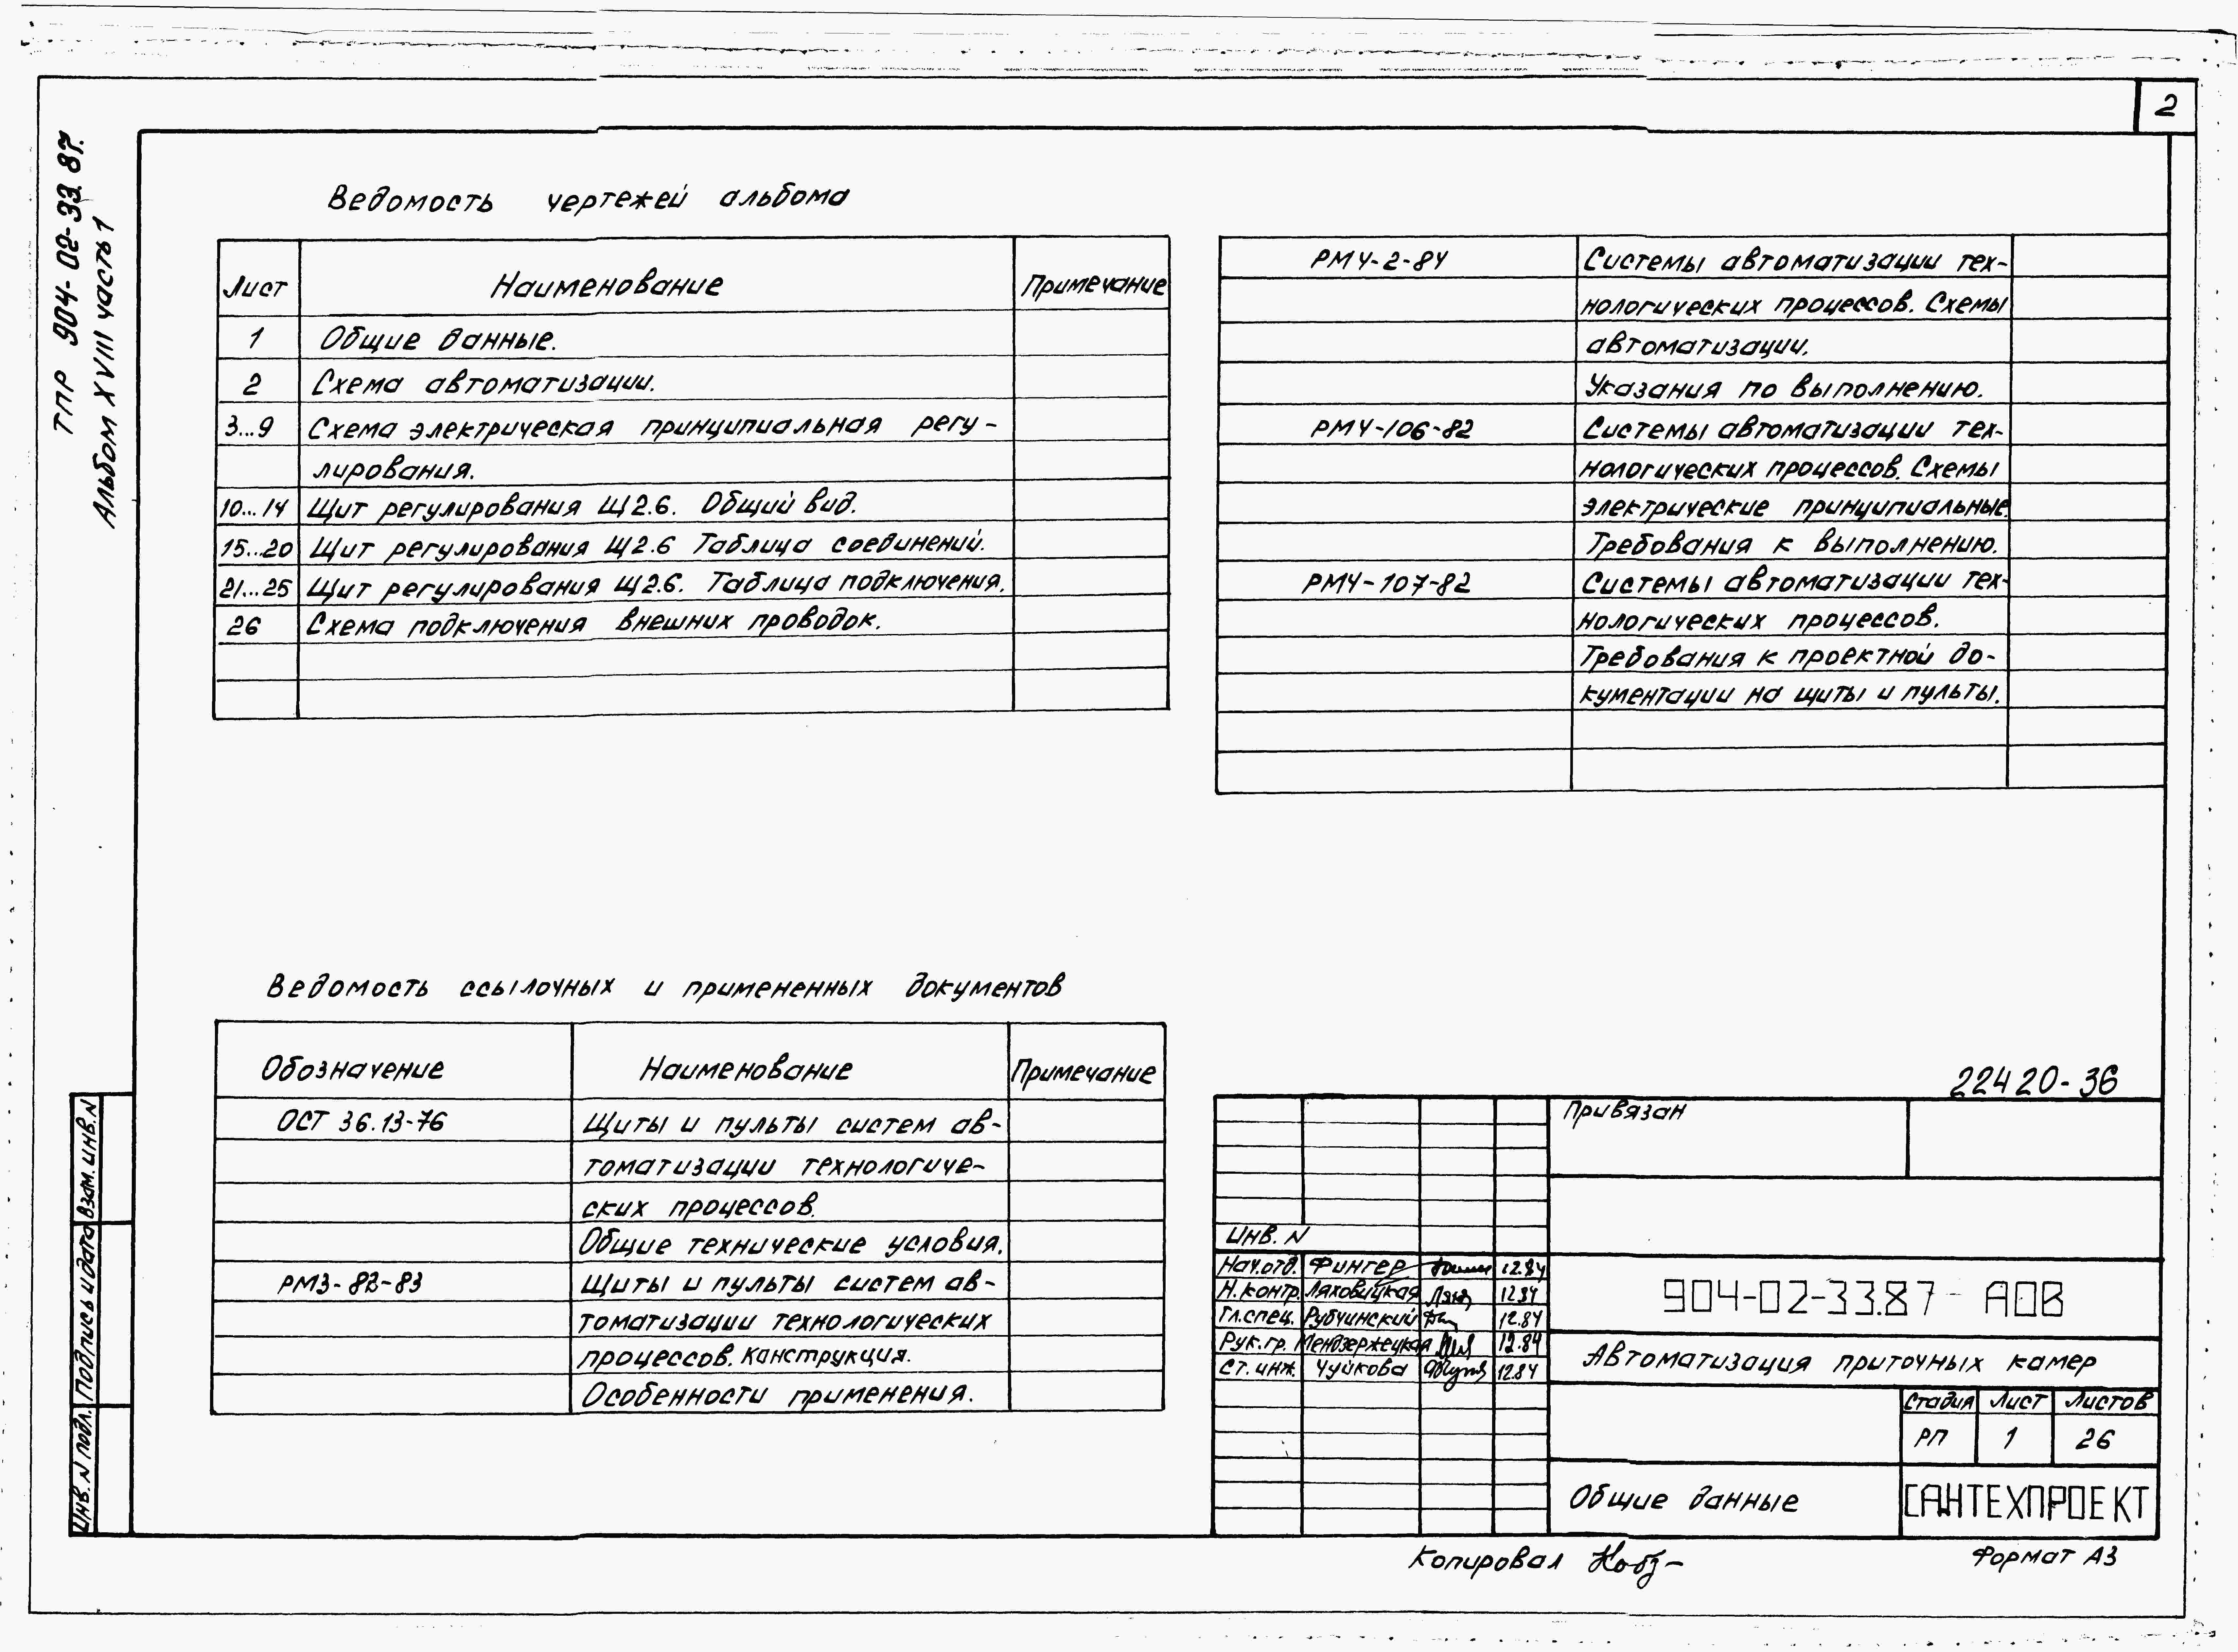 2
ТПР 904-02-33.87.
Альбом XVIII часть 1
Ведомость чертежей альбома
Лист Наименование Примечание
1 Общие данные.
2 Схема автоматизации.
3...9 Схема электрическая принципиальная регу-
лирования.
10...14 Щит регулирования Щ2.6. Общий вид.
15...20 Щит регулирования Щ2.6 Таблица соединений.
21...25 Щит регулирования Щ2.6. Таблица подключения.
26 Схема подключения внешних проводок.
Ведомость ссылочных и примененных документов
Обозначение Наименование Примечание
ОСТ 36.13-76 Щиты и пульты систем ав-
томатизации технологиче-
ских процессов.
Общие технические условия.
РМ3-82-83 Щиты и пульты систем ав-
томатизации технологических
процессов. Конструкция.
Особенности применения.
РМ4-2-84 Системы автоматизации тех-
нологических процессов. Схемы
автоматизации.
Указания по выполнению.
РМ4-106-82 Системы автоматизации тех-
нологических процессов. Схемы
электрические принципиальные.
Требования к выполнению.
РМ4-107-82 Системы автоматизации тех-
нологических процессов.
Требования к проектной до-
кументации на щиты и пульты.
22420-36
Привязан
Инв. N
Нач.отд. Фингер 12.84
Н.контр. Ляховицкая 12.84
Гл.спец. Рубчинский 12.84
Рук.гр. Мендзержецкая 12.84
Ст.инж. Чуйкова 12.84
904-02-33.87 АОВ
Автоматизация приточных камер
Стадия Лист Листов
РП 1 26
Общие данные
САНТЕХПРОЕКТ
Взам. инв. N
Подпись и дата
Инв. N подл.
Копировал
Формат А3